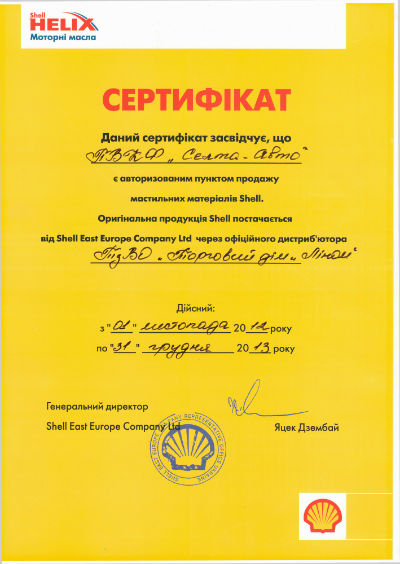 Shell
HELIX
Моторні масла
СЕРТИФІКАТ
Даний сертифікат засвідчує, що
ПВКФ „Селта-Авто"
є авторизованим пунктом продажу
мастильних матеріалів Shell.
Оригінальна продукція Shell постачається
від Shell East Europe Company Ltd через офіційного дистриб'ютора
„Торговий дім „Ліном"
Дійсний:
з "01" листопада 2012 року
по "31" грудня 2013 року
Генеральний директор
Shell East Europe Company Ltd
Яцек Дзембай